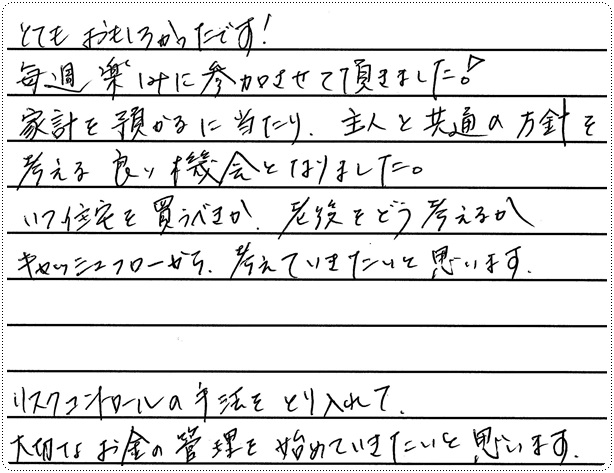 とても おもしろかったです!
毎週 楽しみに参加させて頂きました!
家計を預かるに当たり、主人と共通の方針を
考える良い機会となりました。
いつ住宅を買うべきか、老後をどう考えるか
キャッシュフローから、考えていきたいと思います。
リスクコントロールの手法をとり入れて、
大切なお金の管理を始めていきたいと思います。